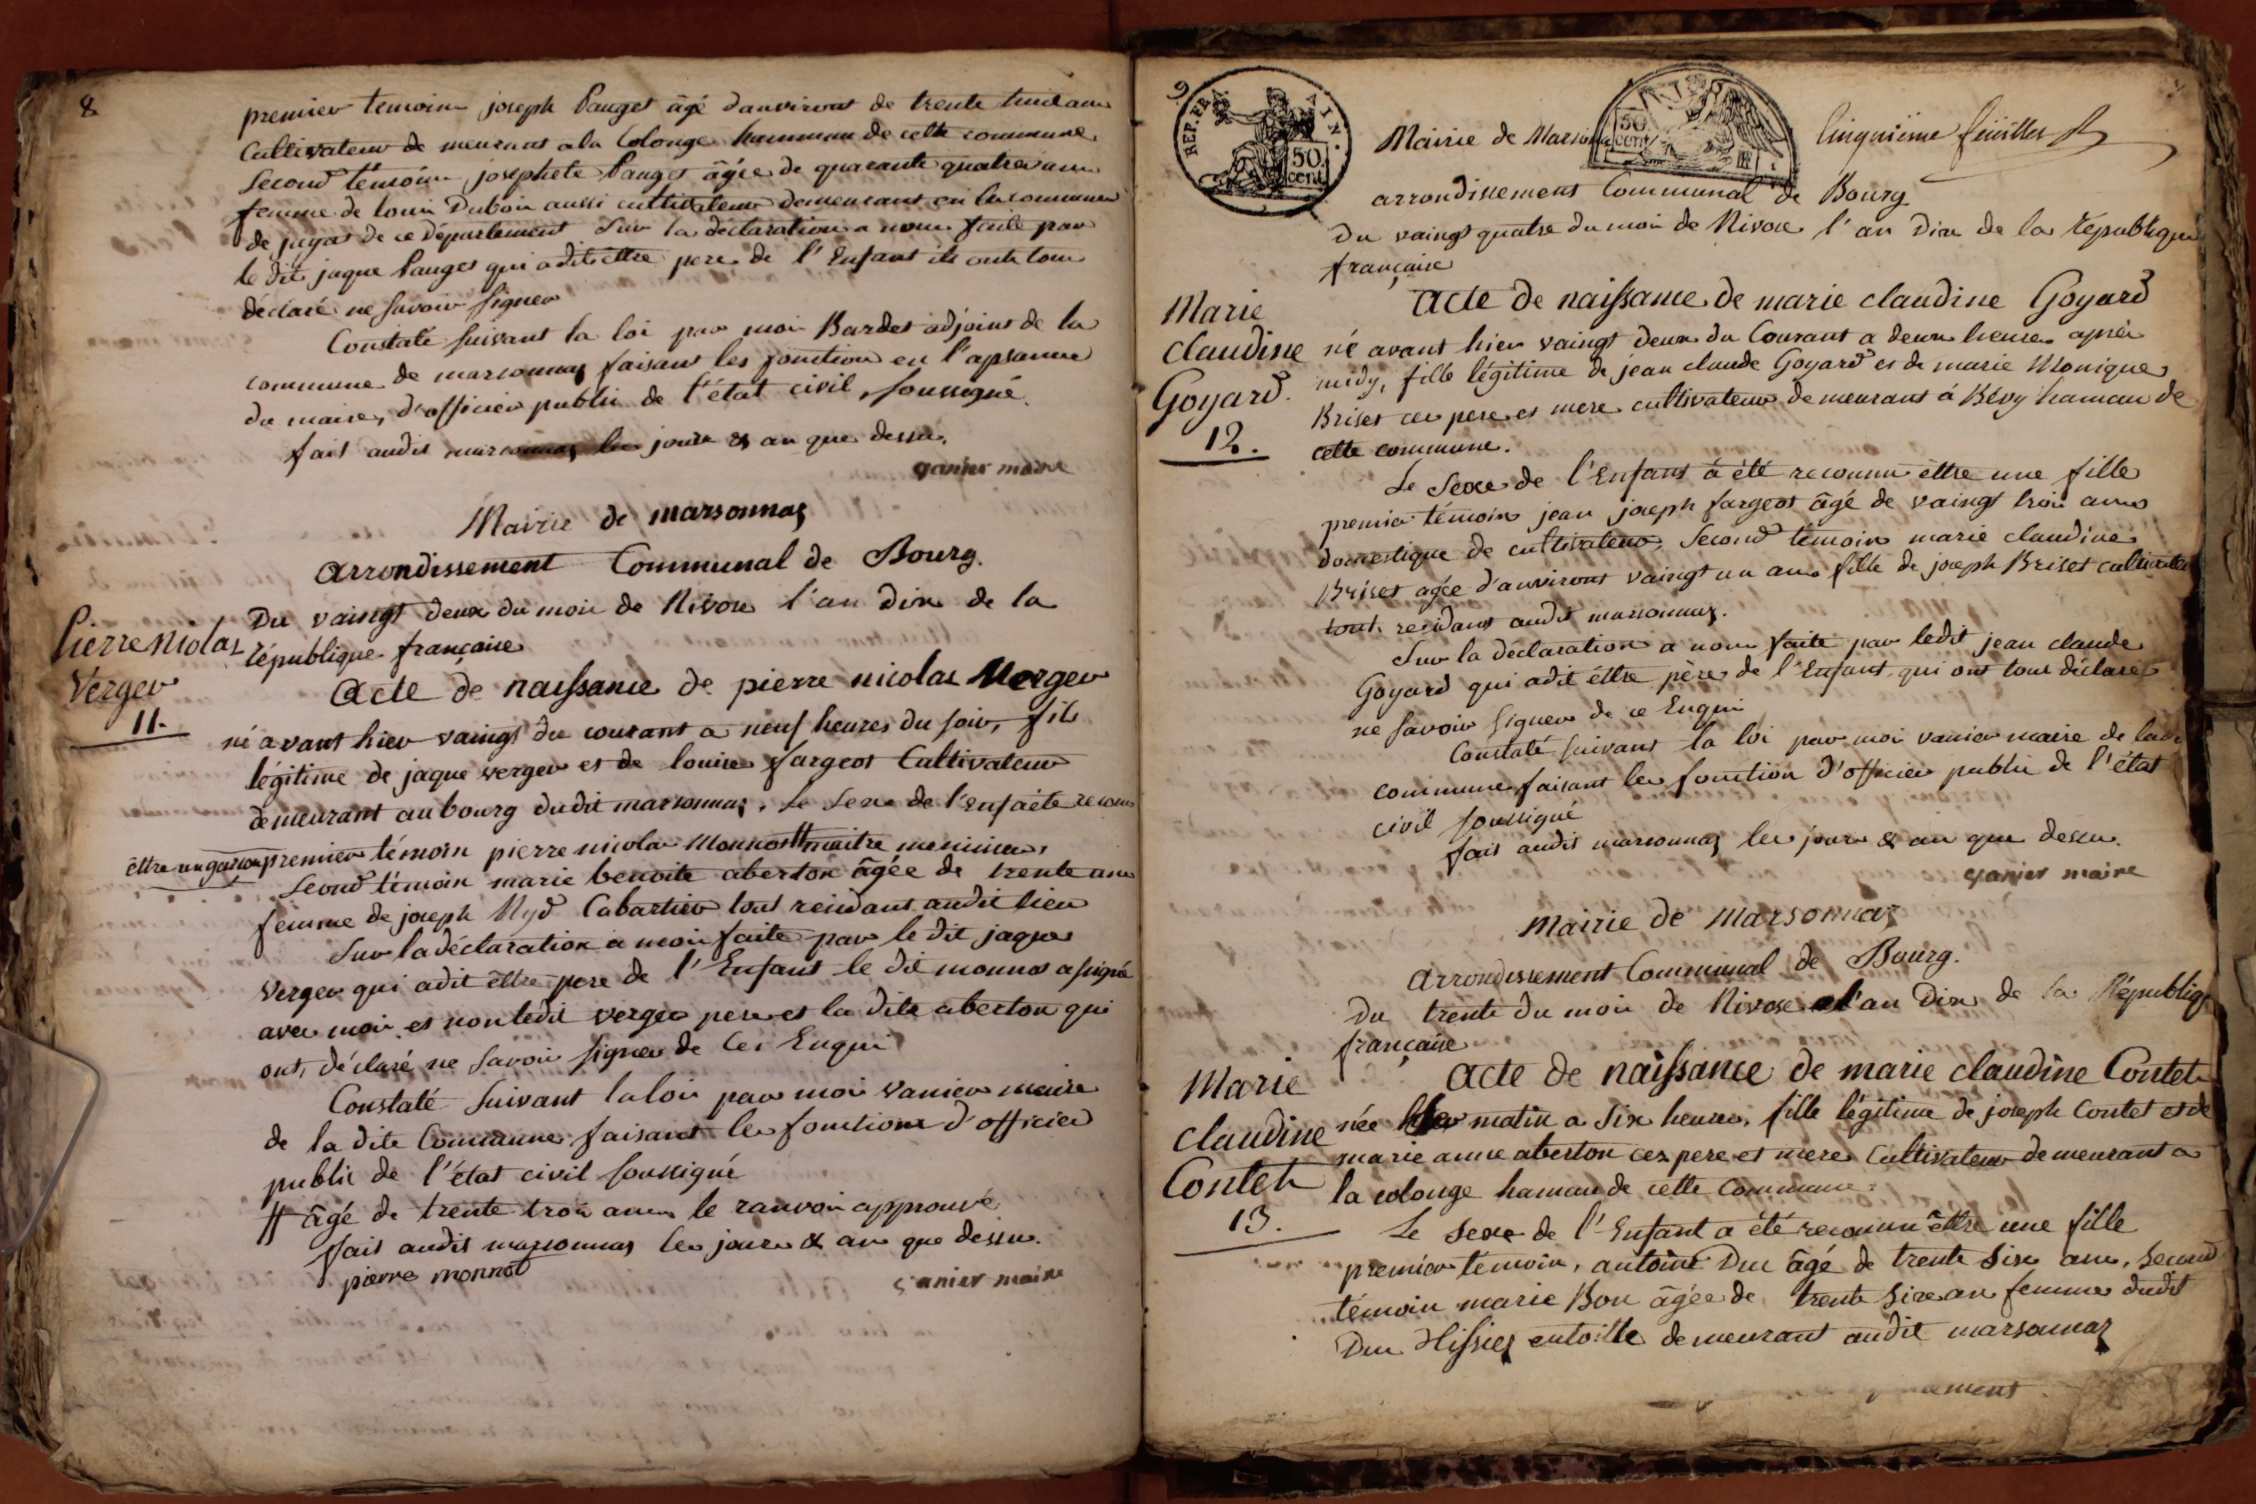 8
premier temoin joseph Pauget âgé danviront de trente huit ans
Cultivateur de meurant a la Colonge hammau de cette commune
Second temoin josephete Pauget âgée de quarante quatre ans
femme de louis Dubois aussi cultivateur demeurant en la commune
de jayat de ce département Sur la déclaration a nous faite par
le dit jaque Pauget qui a dit être pere de l'Enfant ils ont tous
déclaré ne Savoir Signer
Constaté Suivant la loi par moi Bardet adjoint de la
commune de marsonnas faisant les fonction en l'apsance
du maire, d'officier public de l'état civil, soussigné.
fait audit marsonnas les jour & an que dessus.
vanier maire
Mairie de marsonnas
arrondissement Communal de Bourg.
Du vaingt deux du mois de Nivose l'an dix de la
république française
Pierre Nicolas
Verger
11.
Acte de naissance de pierre nicolas Verger
né avant hier vaingt du courant a neuf heures du soir, fils
légitime de jaque verger et de louise fargeot Cultivateur
demeurant au bourg dudit marsonnas. Le Sexe de l'enf a été reconu
être un garçon premier témoin pierre nicolas Monnot # maitre menisier,
Second témoin marie benoite aberton âgée de trente ans
femme de joseph Nyd Cabartier tous residant audit lieu
Sur la déclaration a moi faite par le dit jaque
Verger qui a dit être pere de l'Enfant le dit monnot a signé
avec moi et non ledit verger pere et la dite aberton qui
ont déclaré ne Savoir Signer de Ces Enqui
Constaté Suivant la loi par moi Vanier maire
de la dite Commune faisant les fonctions d'officier
public de l'état civil soussigné
# âgé de trente trois ans le ranvoi approuvé
fait audit marsonnas les jour & an que dessus.
pierre monnot
vanier maire
9
REP. FRA.
AIN.
50 cent
50 cent
Mairie de Marsonnas
Cinquième feuillet
arrondissement Communal de Bourg
Du vaingt quatre du mois de Nivose l'an Dix de la république
française
Marie
Claudine
Goyard.
12.
Acte de naissance de marie claudine Goyard
né avant hier vaingt deux du Courant a deux heures après
midy, fille légitime de jean claude Goyard et de marie Monique
Briset ces pere et mere cultivateur demeurant á Bévy hamau de
cette commune.
Le Sexe de l'Enfant á été reconnu être une fille
premier témoin jean joseph fargeot âgé de vaingt trois ans
domestique de cultivateur, Second témoin marie claudine
Briset agée d'anviront vaingt un ans fille de joseph Briset cultivateur
tout residant audit marsonnas.
Sur la déclaration a nous faite par ledit jean claude
Goyard qui a dit être père de l'Enfant qui ont tous déclaré
ne Savoir Signer de ce Enqui
Constaté Suivant la loi par moi vanier maire de ladi
commune faisant les fonction d'officier public de l'état
civil soussigné
fait audit marsonnas les jour & an que dessus.
vanier maire
Mairie de Marsonnas
Arrondissement Communal de Bourg.
Du trente du mois de Nivose l'an Dix de la Républiq
française
Marie
claudine
Contet
13.
Acte de naissance de marie claudine Contet
née hier matin a Six heures, fille légitime de joseph Contet et de
marie anne aberton ces pere et mere Cultivateur demeurant a
la colonge hamau de cette Commune.
Le Sexe de l'Enfant a été reconnu être une fille
premier témoin, antoine Duc âgé de trente Six ans, Second
témoin marie Bon âgée de trente Six an femme dudit
Duc Tissier entoille demeurant audit marsonnas